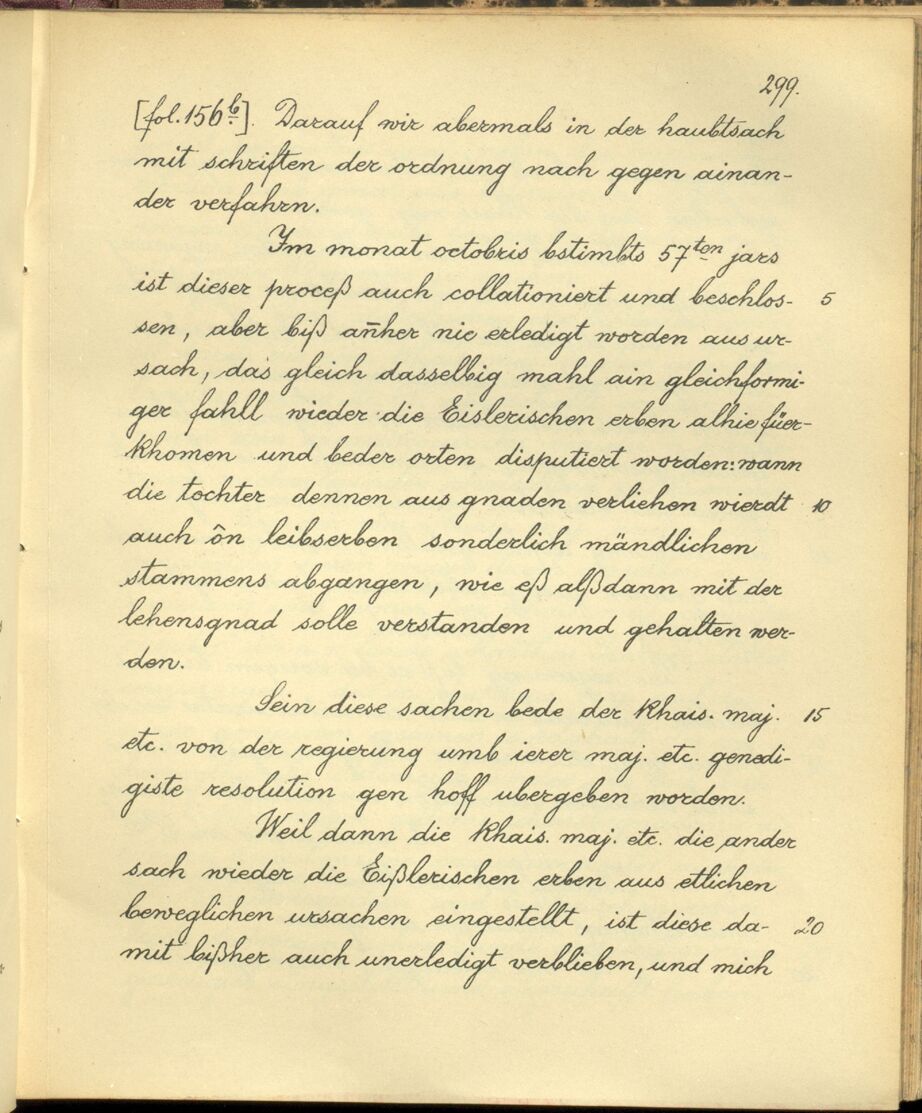 299.
[fol. 156 b.]. Darauf wir abermals in der haubtsach
mit schriften der ordnung nach gegen ainan-
der verfahrn.
Im monat octobris bstimbts 57ten jars
ist dieser proceß auch collationiert und beschlos- 5
sen, aber biß an̄her nie erledigt worden aus ur-
sach, das gleich dasselbig mahl ain gleichformi-
ger fahll wieder die Eislerischen erben alhie füer-
khomen und beder orten disputiert worden: wann
die tochter dennen aus gnaden verliehen wierdt 10
auch ôn leibserben sonderlich mändlichen
stammens abgangen, wie eß alßdann mit der
lehensgnad solle verstanden und gehalten wer-
den.
Sein diese sachen bede der khais. maj. 15
etc. von der regierung umb ierer maj. etc. genedi-
giste resolution gen hoff ubergeben worden.
Weil dann die khais. maj. etc. die ander
sach wieder die Eißlerischen erben aus etlichen
beweglichen ursachen eingestellt, ist diese da- 20
mit bißher auch unerledigt verblieben, und mich